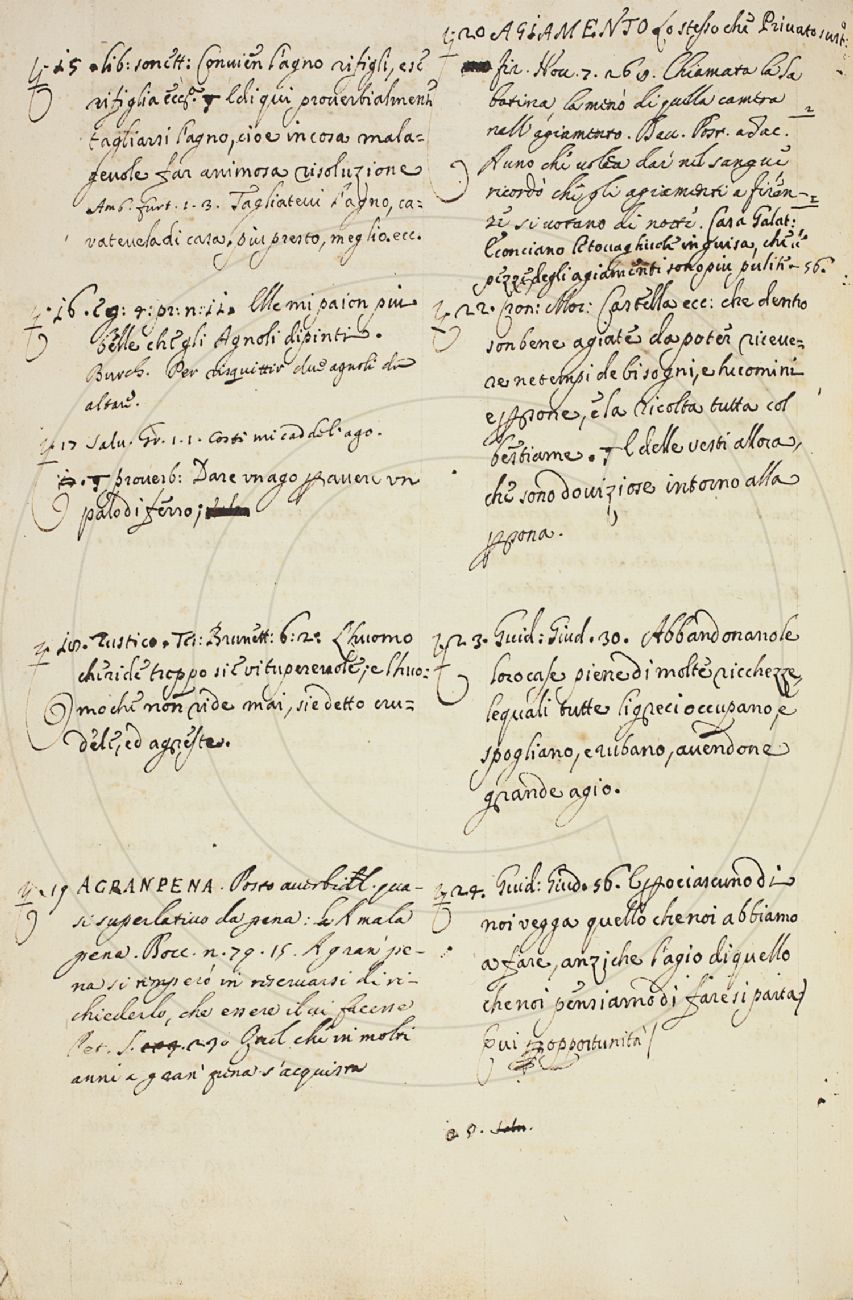 15 . lib: sonett: Convien l'agno rifigli, e se
rifiglia ecc. E di qui proverbialment
tagliarsi l'agno, cioè in cosa mala=
gevole far animosa risoluzione
Amb. furt. 1. 3. Tagliatevi l'agno, ca=
vatevela di casa, più presto, meglio. ecc.
16. g: 4: pr: n: 11. Elle mi paion più
belle che gli Agnoli dipinti.
Burch. Per risquittir due agnoli di
altare.
17 Salv. Gr. 1. 1. costi mi cadde l'ago.
proverb: Dare un ago p avere un
palo di ferro;
18. Rustico. Tes: Brunett: 6: 2 L'huomo
che ride troppo si è vituperevole, e l'huo=
mo che non ride mai, si è detto cru=
dele, ed agreste.
19 AGRANPENA. Posto averbialt. qua=
si superlativo da pena: La A mala
pena. Bocc. n. 79. 15. A gran' pe=
na si temperò in riservarsi di ri=
chiederlo, che essere il vi facesse
Pet. S. Quel che in molti
anni a gran' pena s'acquista
20 AGIAMENTO Lo stesso che Privato sust:
fir. Nov. 7. 269. Chiamata la Sa
batina la menò di quella camera
nell'agiamento. Bocc.
Runo che volea dar nel sangue
ricordò che gli agiamenti a firen=
ze si votano di notte. Casa Galat:
l'conciano le tovagliuole in guisa, che le
pezze degli agiamenti sono più pulite. 56.
22. Cron: Mor: Castella ecc: che dentro
son bene agiate da poter riceve=
re ne tempi de bisogni, e li comini
e ppone, e la ricolta tutta col
bestiame. E delle vesti allora,
che sono doviziose intorno alla
ppona.
23. Guid: Giud. 30. Abbandonano le
loro case piene di molte ricchezze,
le quali tutte li greci occupano, e
spogliano, e rubano, avendone
grande agio.
24. Guid: Giud. 56. E ppo ciascuno di
noi vegga quello che noi abbiamo
a fare, anzi che l'agio di quello
che noi pensiamo di fare si parta
qui opportunità